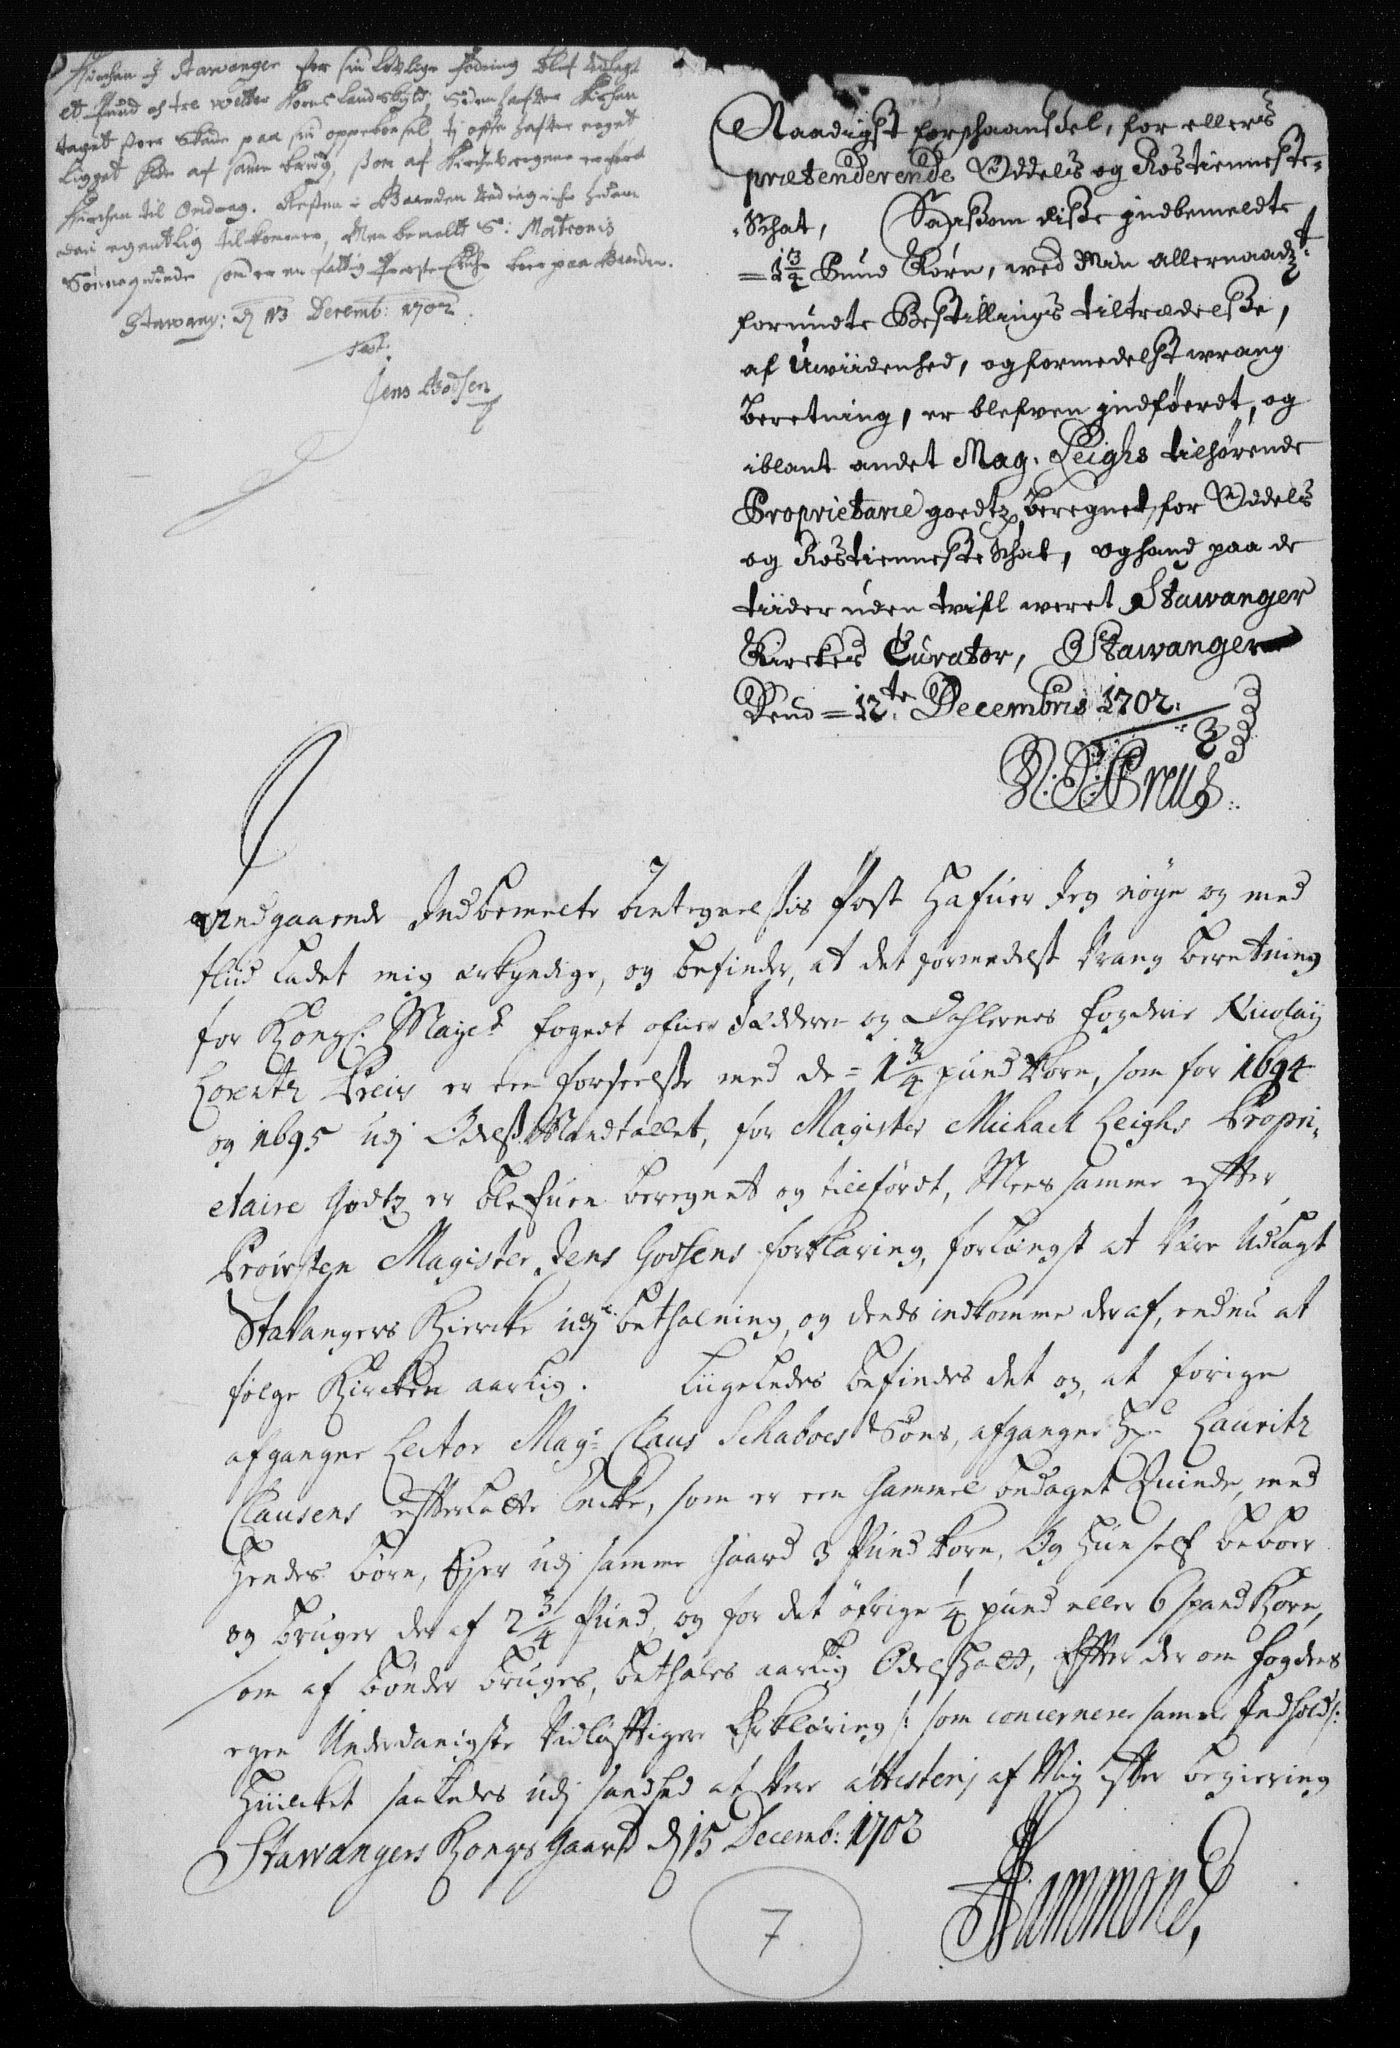 Kirchen I Stawanger for sin lovlige fodring blef udlagt
et Pund og tre wetter Korns Landskyld, Siden hafver Kirchen
taget stor Skade paa sin oppeborsel, ty offte hafver noget
ligget øde af samme brug, som af Kirchevergene er ført
Kirchen til Ondrag. Resten i Gaarden ved ieg icke hvem
den egentlig tilkommer, Men bemelt S: Matronis
Sønneqvinde som er en fattig Præste Encke boer paa Gaarden.
Stawang: d 13 Decemb: 1702.
Test:
Jens Godsen
Naadigst forschaansel, for ellers
prætenderende Oddels og Rostienneste-
-Schat, Saasom disse indbemeldte
=1 3/4 Pund Korn, wed Min allernaadt:
forundte Bestillings tiltrædelse,
af Uwiidenhed, og formedelst wrang
beretning, er blefven indføerdt, og
iblant andet Mag. Leighs tilhørende
Proprietarie goedtz beregnet for Oddels
og Rostienneste Schat, og hand paa de
tiider uden twifl weret Stawanger
Kirckes Curator, Stawanger
Dend =12te Decembris 1702.
N: L: Preus
Vedgaaende Indbemelte Antegnelsis Post hafuer Jeg nøye og med
fliid ladet mig erkyndige, og befinder, at det formedelst Vrang beretning
for Kongl: Mayets fogedt ofuer Jædderen og Dahlernes fogderie Nicolaij
Lorentz Preis er een forseelse med de =1 3/4 pund Korn, som for 1694
og 1695 udj Odelß Mandtallet, for Magister Michael Leighs Propri-
etaire Godtz er blefuen beregnet og tilført, Mens samme effter
Prousten Magister Jens Godsens forklaring, forlængst at Være Udlagt
Stavangers Kiercke udj betahlning, og dends indkomme deraf, endnu at
følge Kircken aarlig. Liigeledes befindes det og, at forige
afgangne Lector Magr Claus Schaboes Søns, afgangne Hr. Lauritz
Clausens effterlatte Encke, som er een gammel bedaget Quinde, med
hendes børn, Ejer udj samme gaard 3 Pund korn, Og hun self beboer
og bruger der af 2 3/4 Pund, og for det øfrige 1/4 pund eller 6 spand Korn,
som af bønder bruges, betahles aarlig Odelschatt, Effter der om fogdens
egen Underdanigste Vidløfftigere Erklæring /: som concernerer samme Indhold :/
huilcket saaledes udj sandhed at være attesteris af Mig effter begiering
Stawangers Kongs Gaard d 15 Decemb: 1702
Hammond,
7